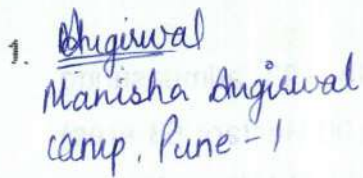 1. Angirwal
Manisha Angirwal
Camp, Pune - 1